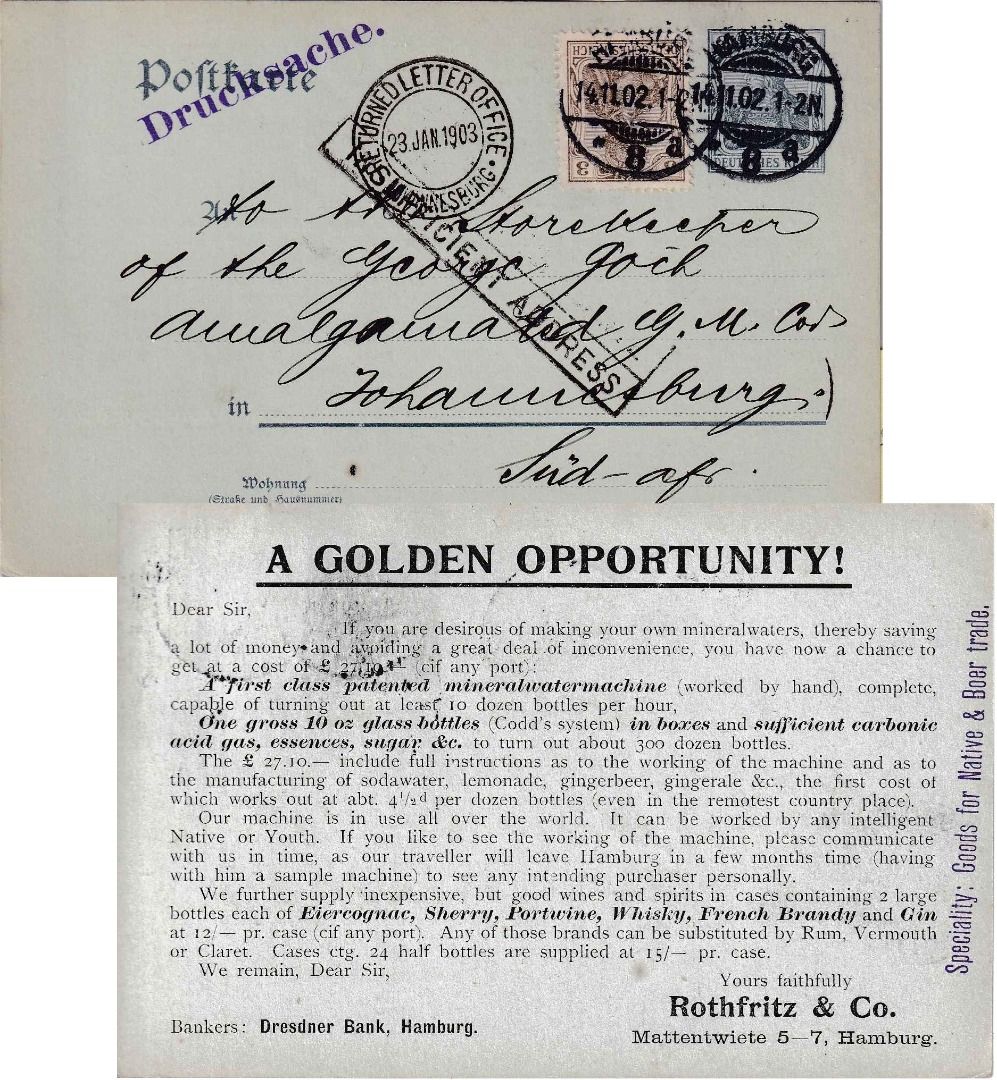 Postkarte
Drucksache.
RETURNED LETTER OFFICE
23. JAN. 1903
HAMBURG
14.11.02. 1-2N.
* 8 a
HAMBURG
14.11.02. 1-2N.
* 8 a
3
3
DEUTSCHES REICH
INSUFFICIENT ADDRESS
An
To the Storekeeper
of the George Goch
Amalgamated G. M. Co
in Johannesburg.)
Süd-afr.
Wohnung
(Straße und Hausnummer)
A GOLDEN OPPORTUNITY!
Dear Sir,
If you are desirous of making your own mineralwaters, thereby saving
a lot of money and avoiding a great deal of inconvenience, you have now a chance to
get at a cost of £ 27.10.— (cif any port):
A first class patented mineralwatermachine (worked by hand), complete,
capable of turning out at least 10 dozen bottles per hour,
One gross 10 oz glass bottles (Codd's system) in boxes and sufficient carbonic
acid gas, essences, sugar &c. to turn out about 300 dozen bottles.
The £ 27.10.— include full instructions as to the working of the machine and as to
the manufacturing of sodawater, lemonade, gingerbeer, gingerale &c., the first cost of
which works out at abt. 4 1/2 d per dozen bottles (even in the remotest country place).
Our machine is in use all over the world. It can be worked by any intelligent
Native or Youth. If you like to see the working of the machine, please communicate
with us in time, as our traveller will leave Hamburg in a few months time (having
with him a sample machine) to see any intending purchaser personally.
We further supply inexpensive, but good wines and spirits in cases containing 2 large
bottles each of Eiercognac, Sherry, Portwine, Whisky, French Brandy and Gin
at 12/— pr. case (cif any port). Any of those brands can be substituted by Rum, Vermouth
or Claret. Cases ctg. 24 half bottles are supplied at 15/— pr. case.
We remain, Dear Sir,
Yours faithfully
Rothfritz & Co.
Bankers: Dresdner Bank, Hamburg.
Mattentwiete 5—7, Hamburg.
Speciality: Goods for Native & Boer trade.